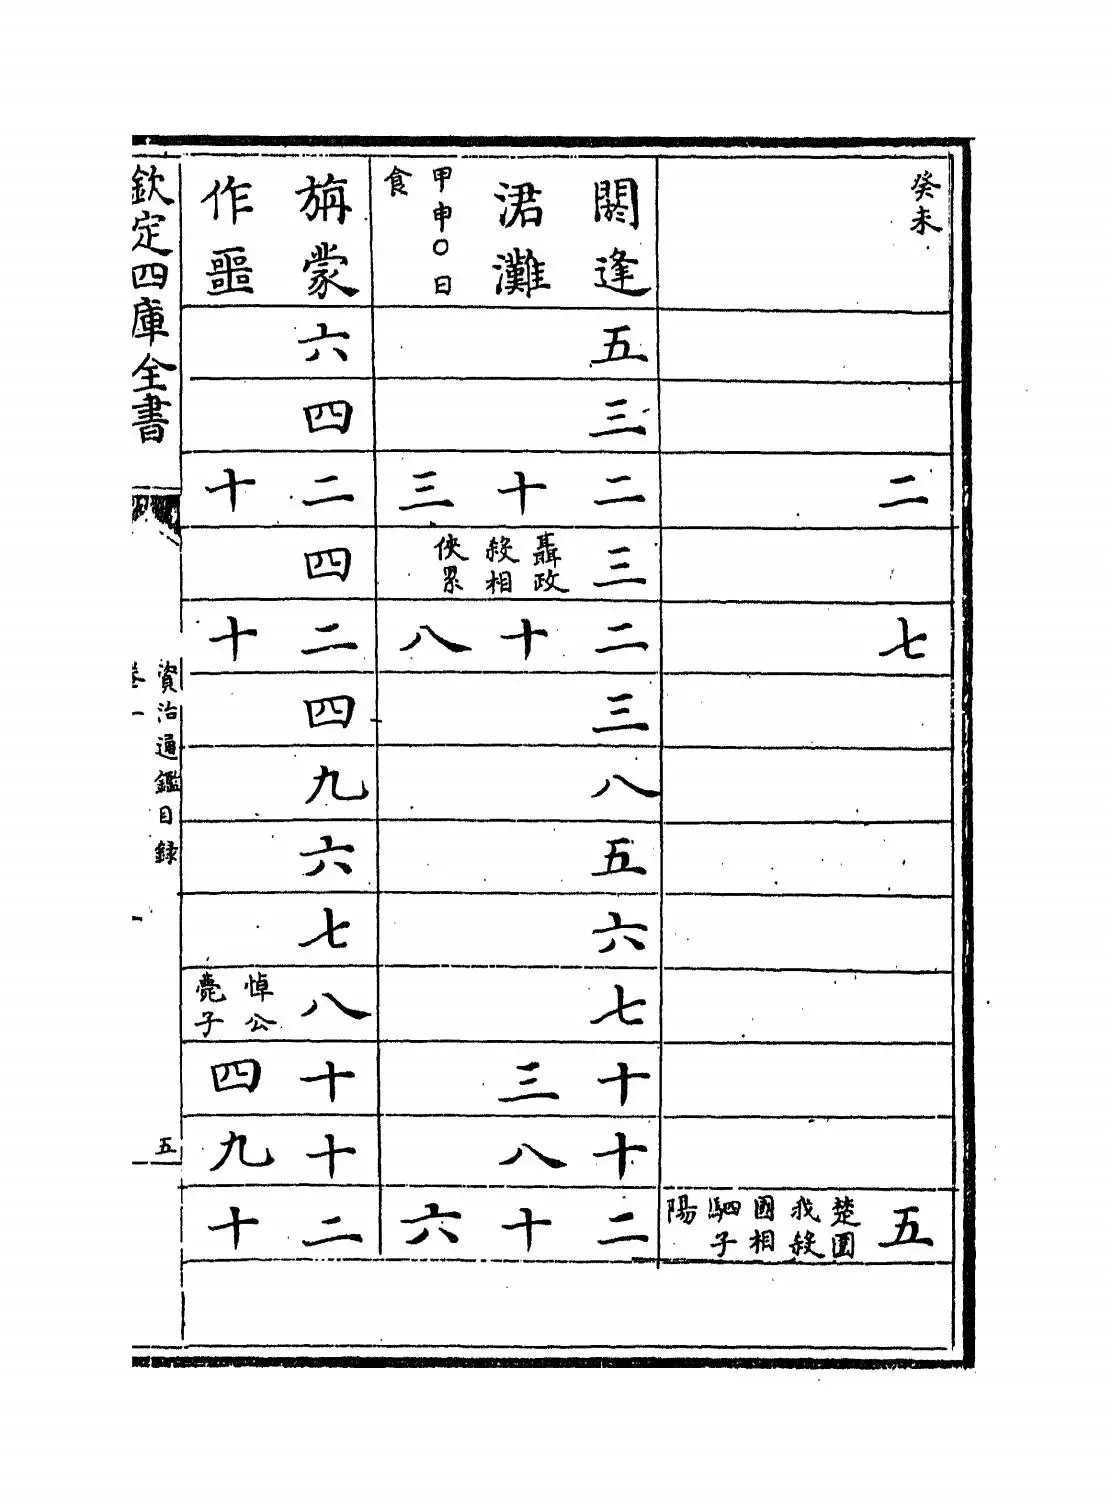 癸未
二
七
五楚圍我殺國相駟子陽
閼逢涒灘甲申〇日食
五
三
二十三
三聶政殺相俠累
二十八
三
八
五
六
七
十三
十八
二十六
旃蒙作噩
六
四
二十
四
二十
四
九
六
七
八悼公薨子
十四
十九
二十
欽定四庫全書
資治通鑑目録
卷一
五